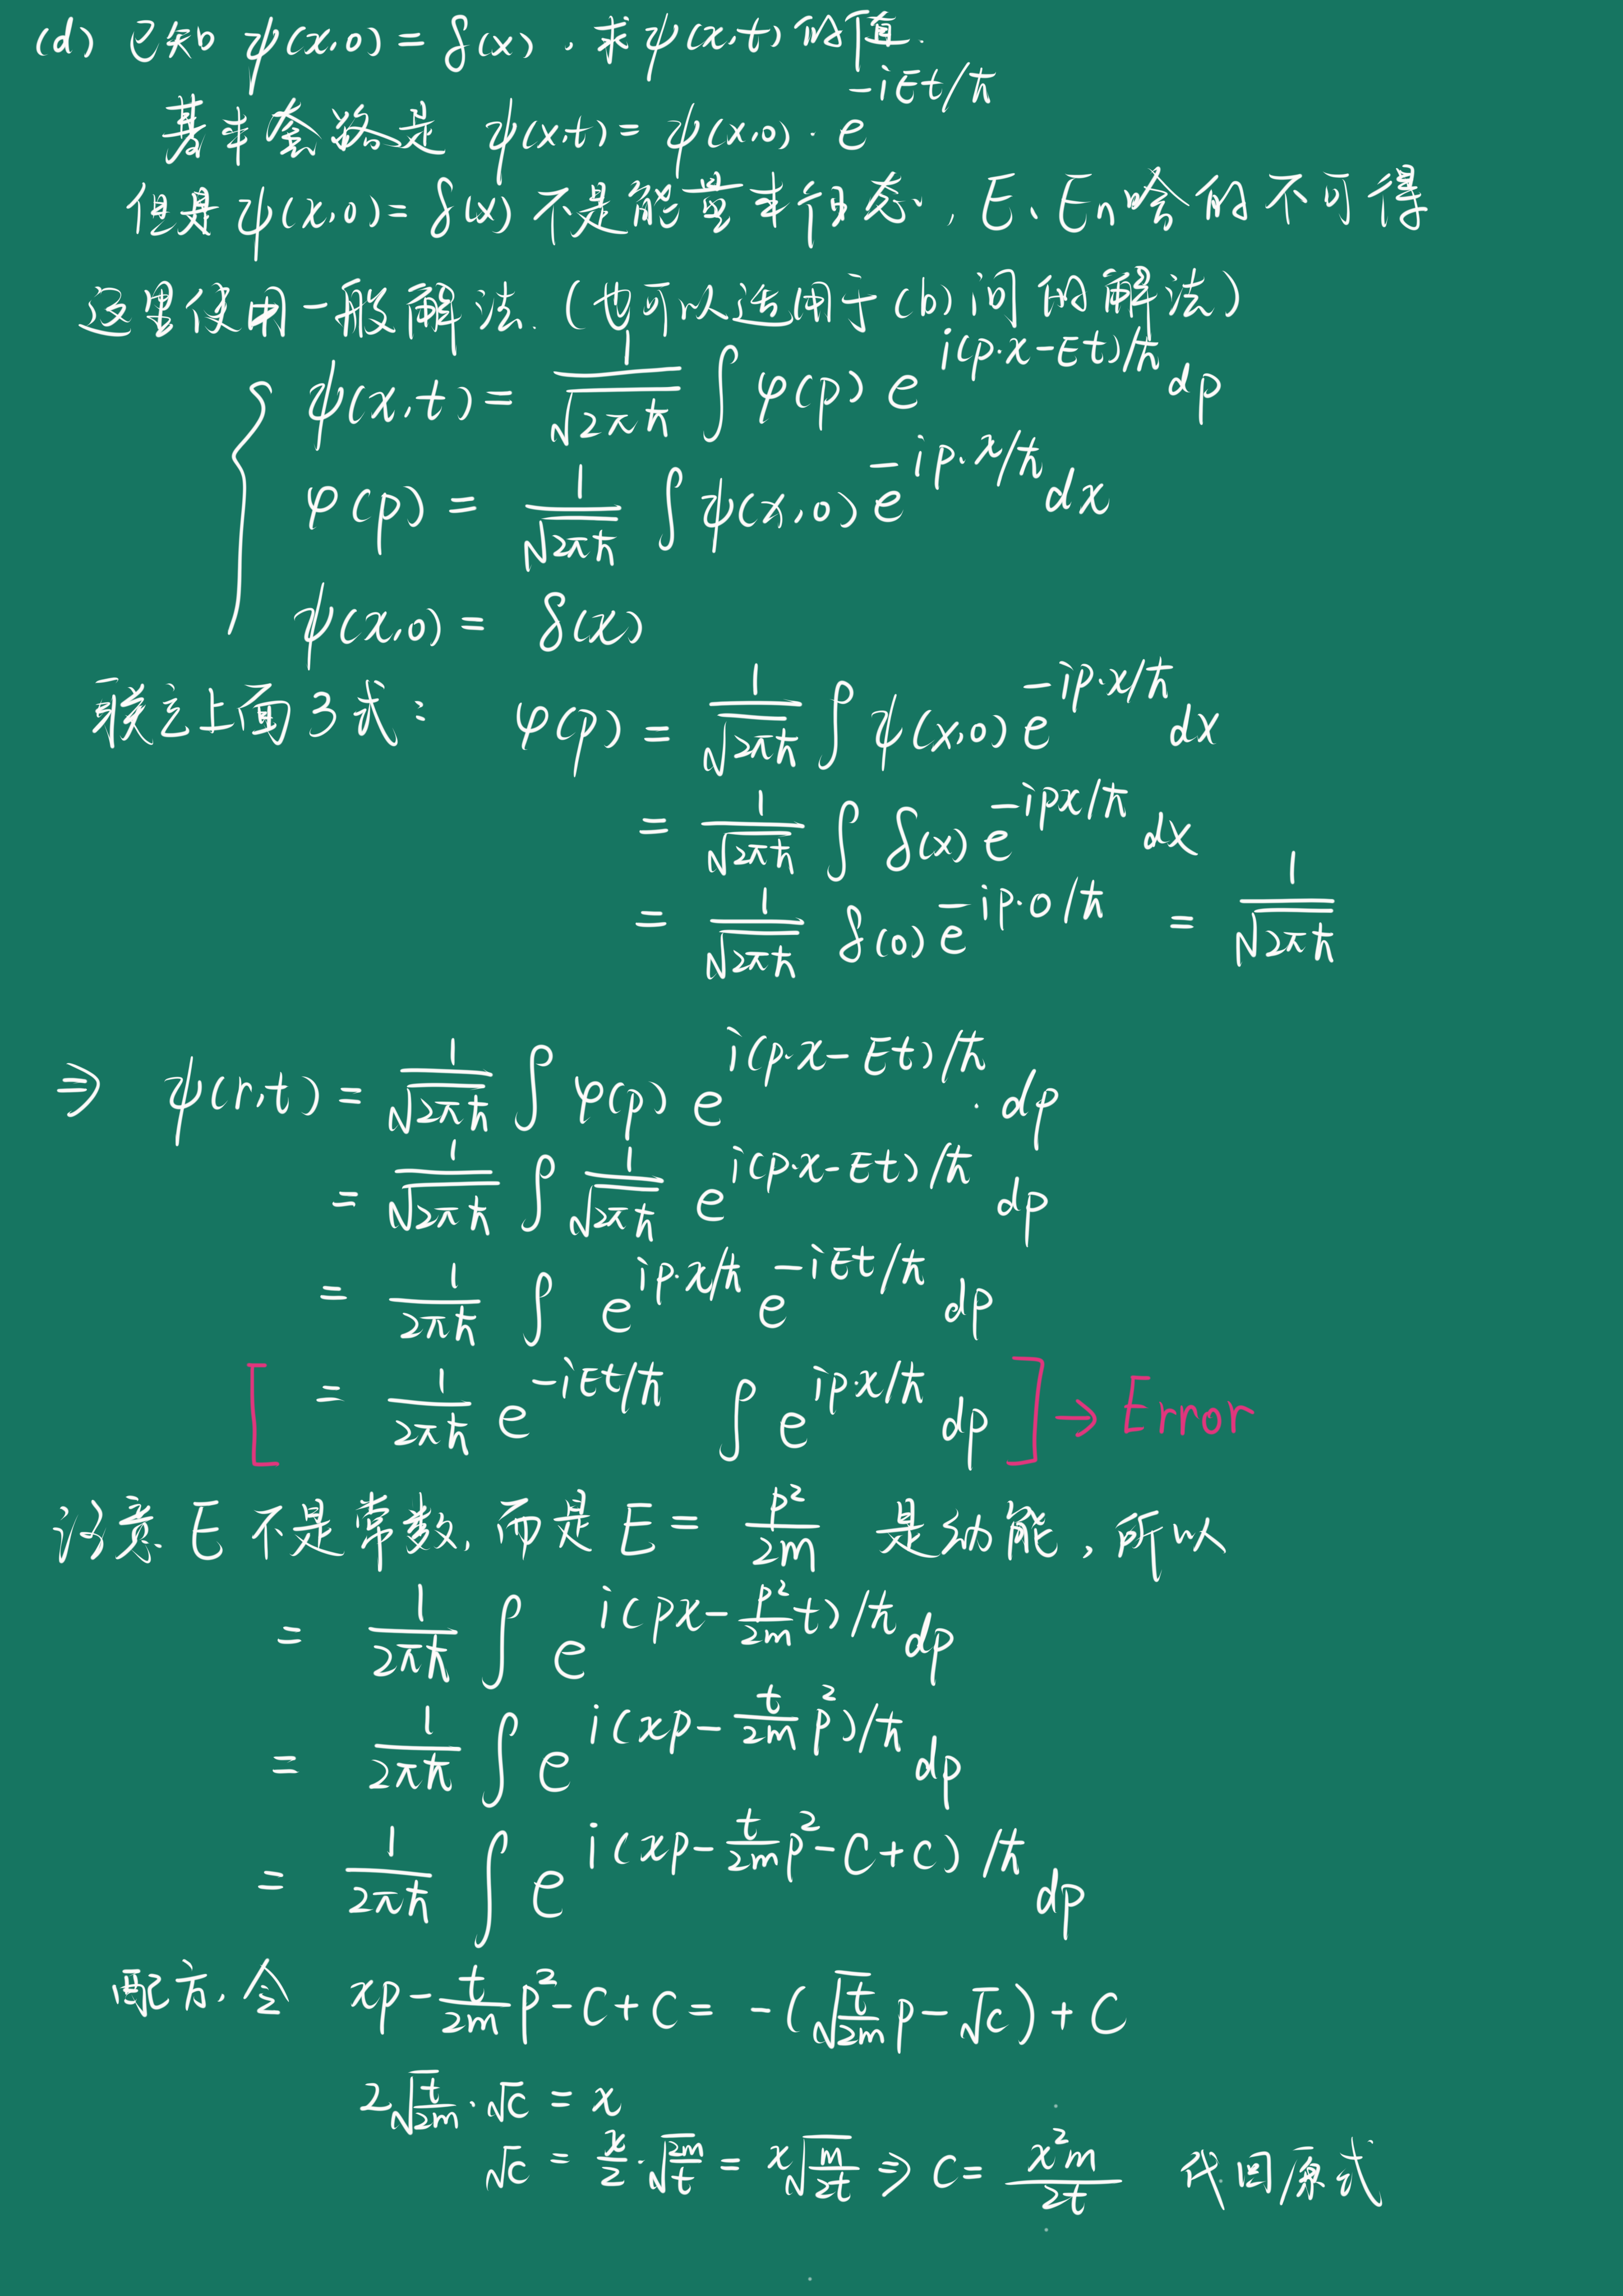 (d) 已知 ψ(x,0) = δ(x), 求 ψ(x,t) 的值.
基本套路是 ψ(x,t) = ψ(x,0) · e^{-iEt/ħ}
但是 ψ(x,0) = δ(x) 不是能量本征态, E、En啥的不可得
这里使用一般解法. (也可以适用于(b)问的解法)
ψ(x,t) = 1/√(2πħ) ∫ φ(p) e^{i(p·x-Et)/ħ} dp
φ(p) = 1/√(2πħ) ∫ ψ(x,0) e^{-ip·x/ħ} dx
ψ(x,0) = δ(x)
联立上面3式: φ(p) = 1/√(2πħ) ∫ ψ(x,0) e^{-ip·x/ħ} dx
= 1/√(2πħ) ∫ δ(x) e^{-ipx/ħ} dx
= 1/√(2πħ) δ(0) e^{-ip·0/ħ} = 1/√(2πħ)
⇒ ψ(r,t) = 1/√(2πħ) ∫ φ(p) e^{i(p·x-Et)/ħ} · dp
= 1/√(2πħ) ∫ 1/√(2πħ) e^{i(p·x-Et)/ħ} dp
= 1/(2πħ) ∫ e^{ip·x/ħ} e^{-iEt/ħ} dp
[ = 1/(2πħ) e^{-iEt/ħ} ∫ e^{ip·x/ħ} dp ] → Error
注意 E 不是常数, 而是 E = p²/2m 是动能, 所以
= 1/(2πħ) ∫ e^{i(px - p²/2m t)/ħ} dp
= 1/(2πħ) ∫ e^{i(xp - t/2m p²)/ħ} dp
= 1/(2πħ) ∫ e^{i(xp - t/2m p² - C + C)/ħ} dp
配方, 令 xp - t/2m p² - C + C = -(√(t/2m) p - √C) + C
2√(t/2m) · √C = x
√C = x/2 · √(2m/t) = x√(m/2t) ⇒ C = x²m/2t 代回原式